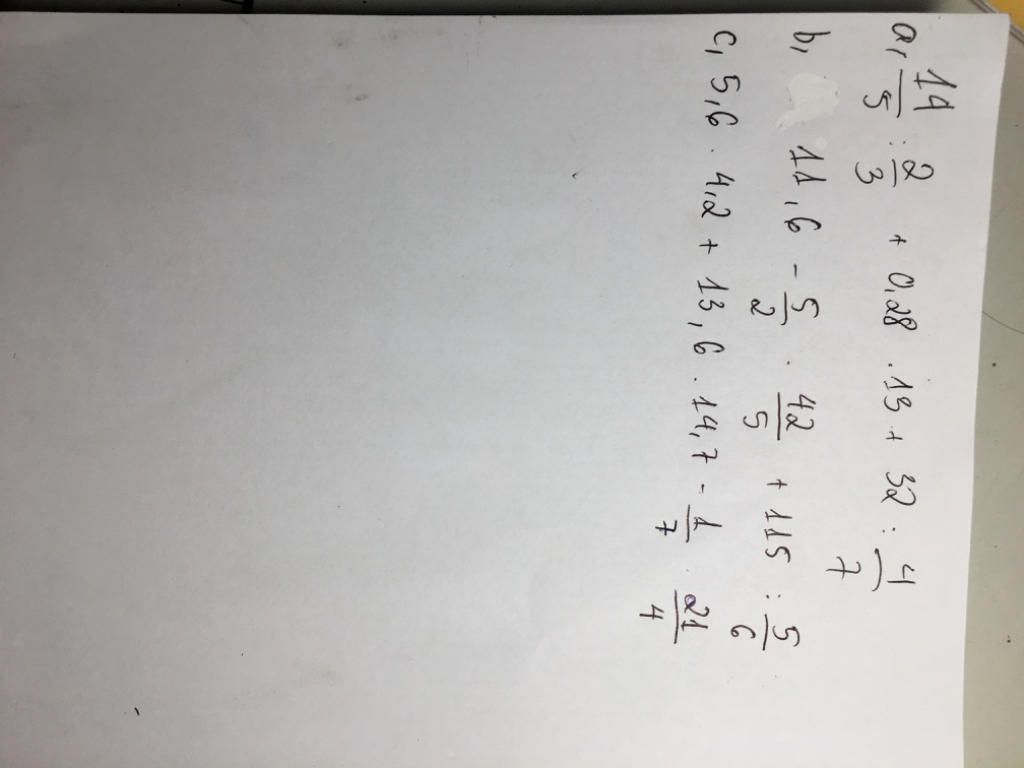 a, 14/5 : 2/3 + 0,28 . 13 + 32 : 4/7
b, 11,6 - 5/2 . 42/5 + 115 : 5/6
c, 5,6 . 4,2 + 13,6 . 14,7 - 1/7 . 21/4